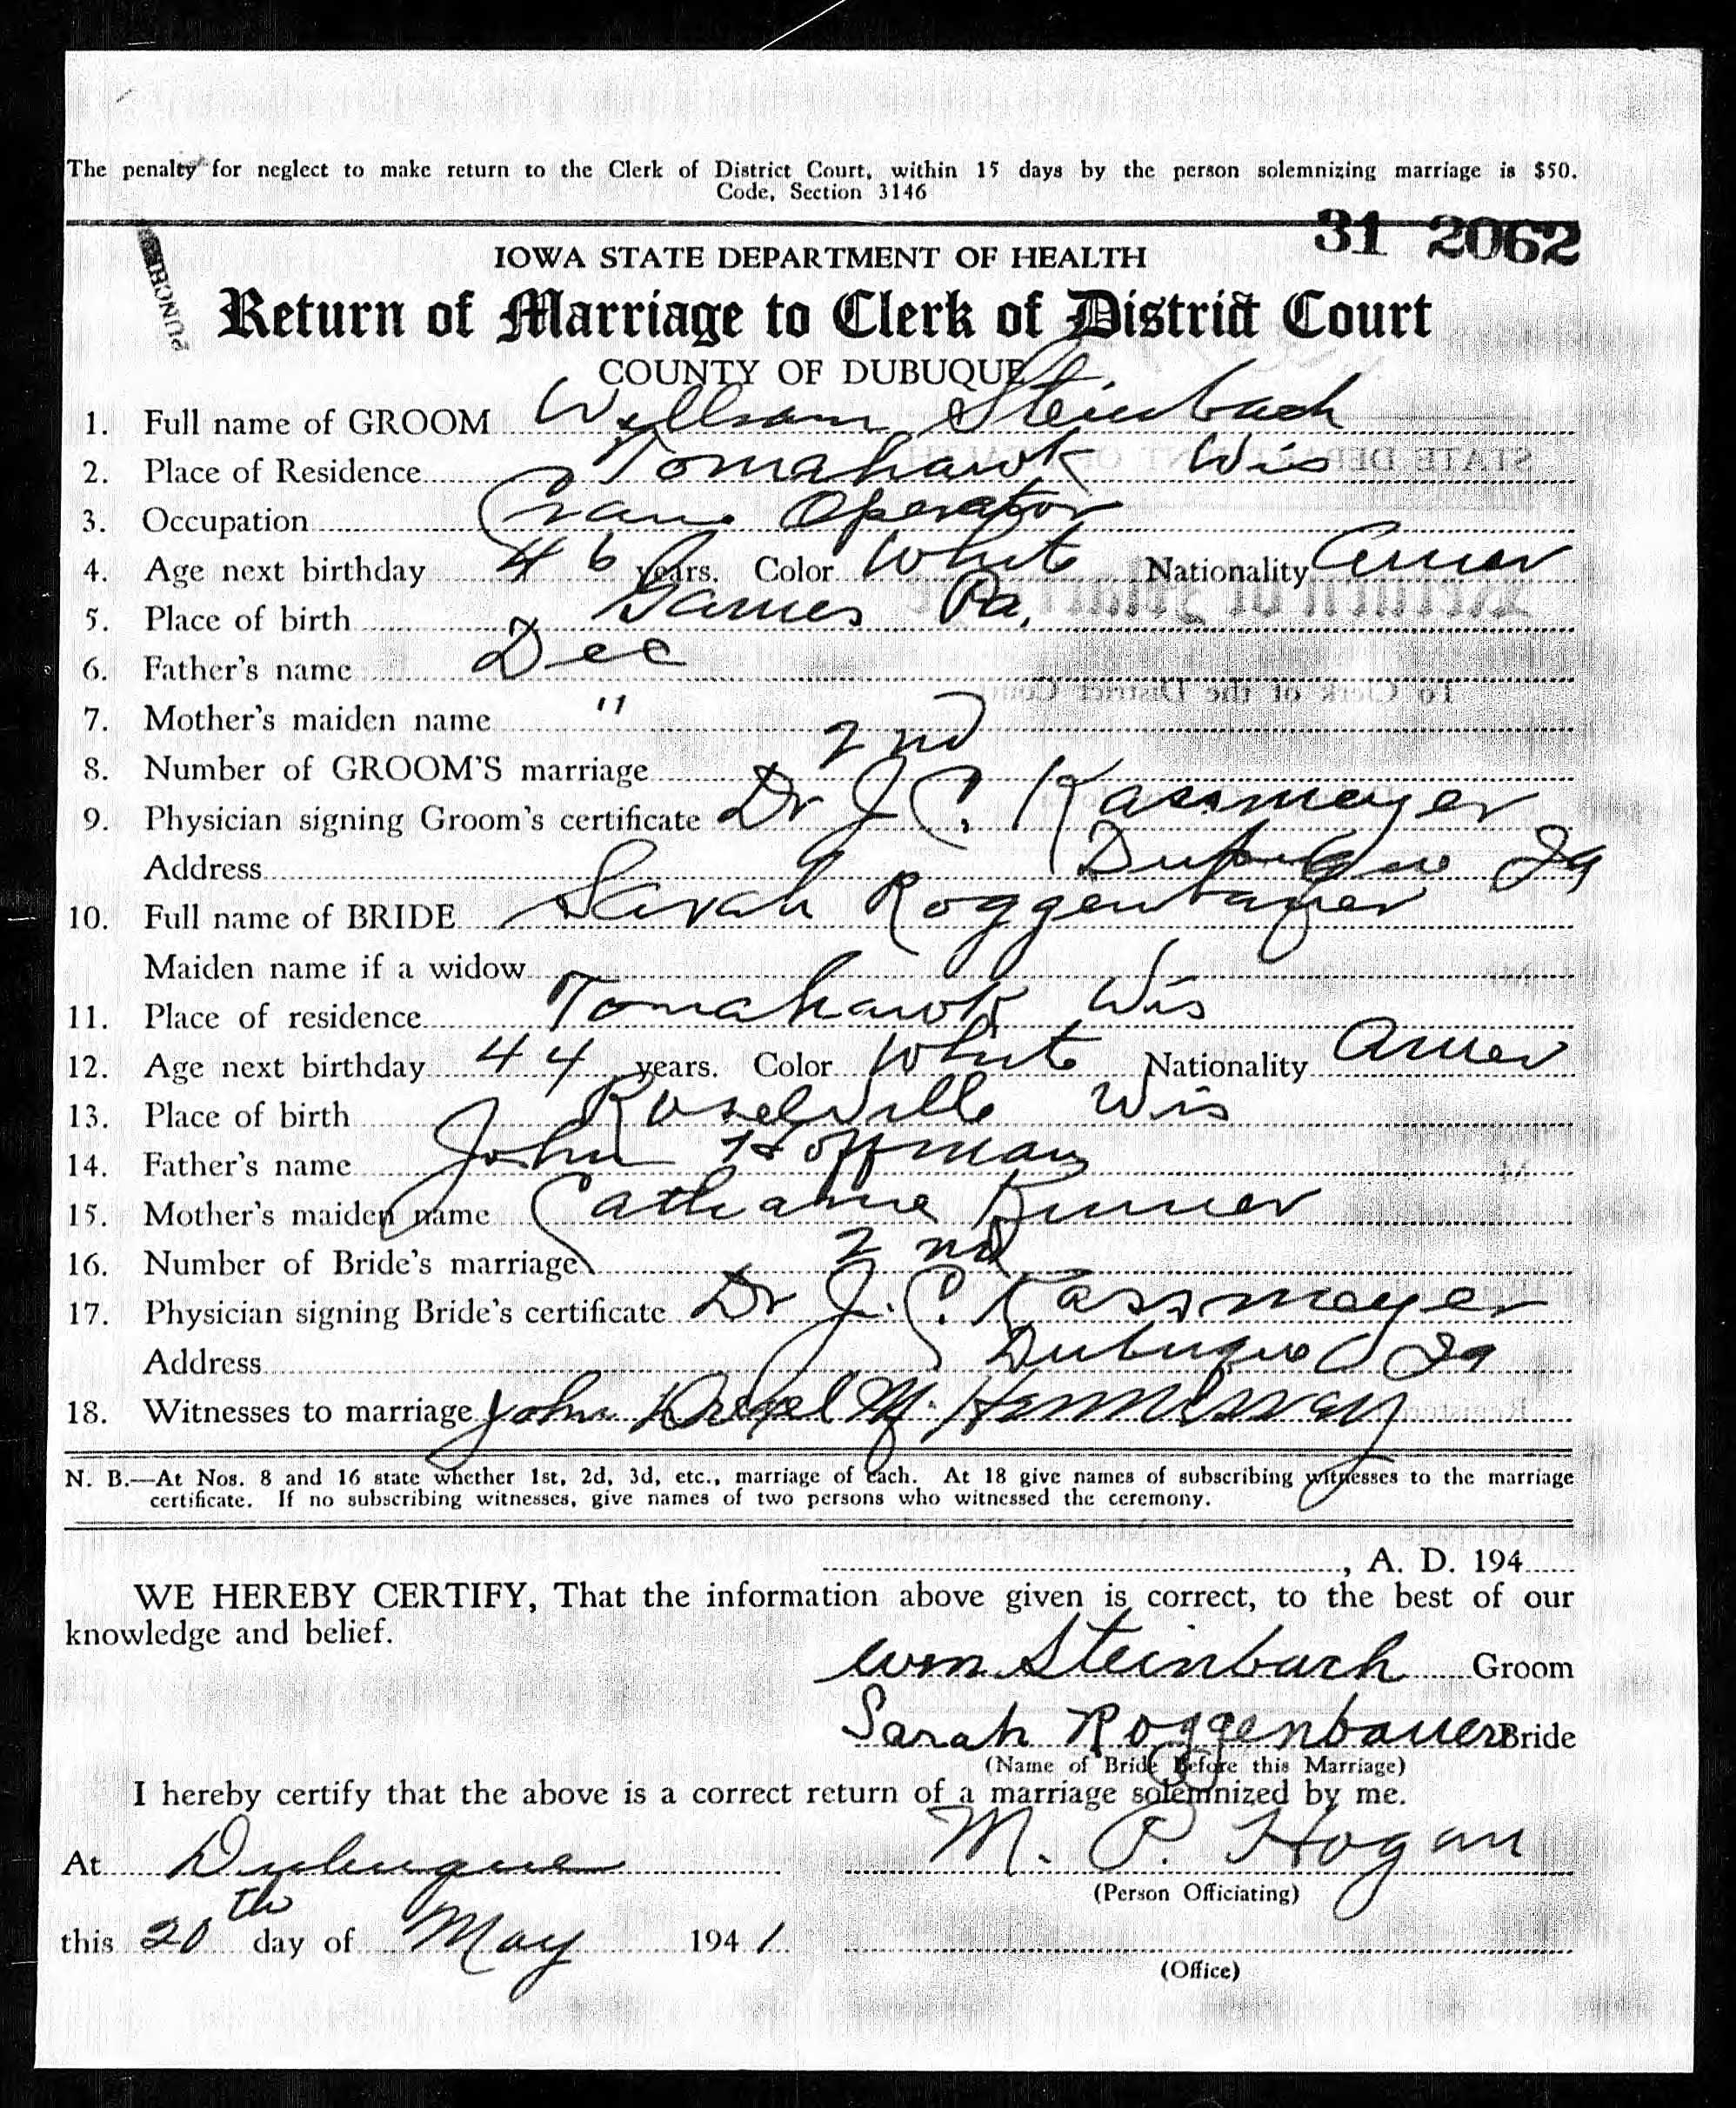 The penalty for neglect to make return to the Clerk of District Court, within 15 days by the person solemnizing marriage is $50.
Code, Section 3146
31 2062
PUNCHED
IOWA STATE DEPARTMENT OF HEALTH
Return of Marriage to Clerk of District Court
COUNTY OF DUBUQUE
1. Full name of GROOM William Steinbach
2. Place of Residence Tomahawk Wis
3. Occupation Crane Operator
4. Age next birthday 46 years. Color White Nationality Amer
5. Place of birth Pa.
6. Father's name Dec
7. Mother's maiden name "
8. Number of GROOM'S marriage 2nd
9. Physician signing Groom's certificate Dr J. C. Kassmeyer
Address Dubuque Ia
10. Full name of BRIDE Sarah Roggenbauer
Maiden name if a widow
11. Place of residence Tomahawk Wis
12. Age next birthday 44 years. Color White Nationality Amer
13. Place of birth Wis
14. Father's name John Hoffman
15. Mother's maiden name
16. Number of Bride's marriage 2nd
17. Physician signing Bride's certificate Dr J. C. Kassmeyer
Address Dubuque Ia
18. Witnesses to marriage John M.
N. B.—At Nos. 8 and 16 state whether 1st, 2d, 3d, etc., marriage of each. At 18 give names of subscribing witnesses to the marriage
certificate. If no subscribing witnesses, give names of two persons who witnessed the ceremony.
, A. D. 194
WE HEREBY CERTIFY, That the information above given is correct, to the best of our
knowledge and belief.
Wm Steinbach Groom
Sarah Roggenbauer Bride
(Name of Bride Before this Marriage)
I hereby certify that the above is a correct return of a marriage solemnized by me.
At Dubuque M. P. Hogan
(Person Officiating)
this 20th day of May 1941
(Office)